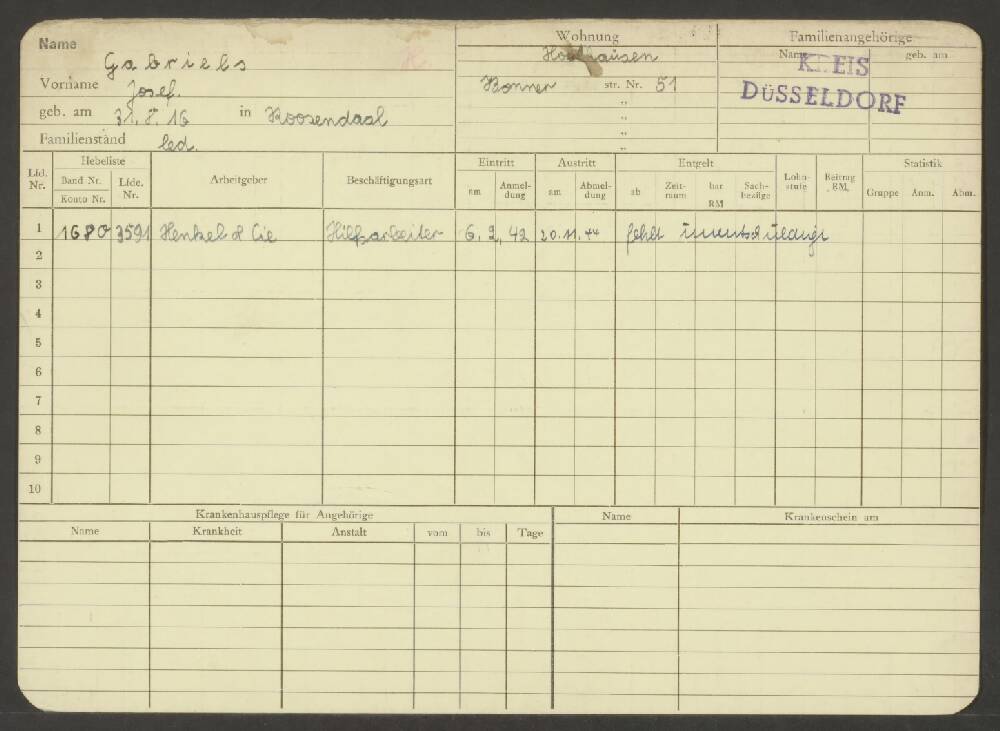 Name Gabriels
Vorname Josef.
geb. am 31. 8. 16 in Roosendaal
Familienstand led.
Wohnung
Holthausen
Bonner str. Nr. 51
"
"
"
Familienangehörige
Name geb. am
KREIS
DÜSSELDORF
Lfd. Nr. Hebeliste Arbeitgeber Beschäftigungsart Eintritt Austritt Entgelt Lohn-stufe Beitrag RM. Statistik
Band Nr. Lfde. Nr. am Anmel-dung am Abmel-dung ab Zeit-raum bar RM Sach-bezüge Gruppe Anm. Abm.
Konto Nr.
1 1680 3591 Henkel & Cie Hilfsarbeiter 6. 2. 42 20. 11. 44 fehlt unentschuldigt
2
3
4
5
6
7
8
9
10
Krankenhauspflege für Angehörige
Name Krankheit Anstalt vom bis Tage
Name Krankenschein am